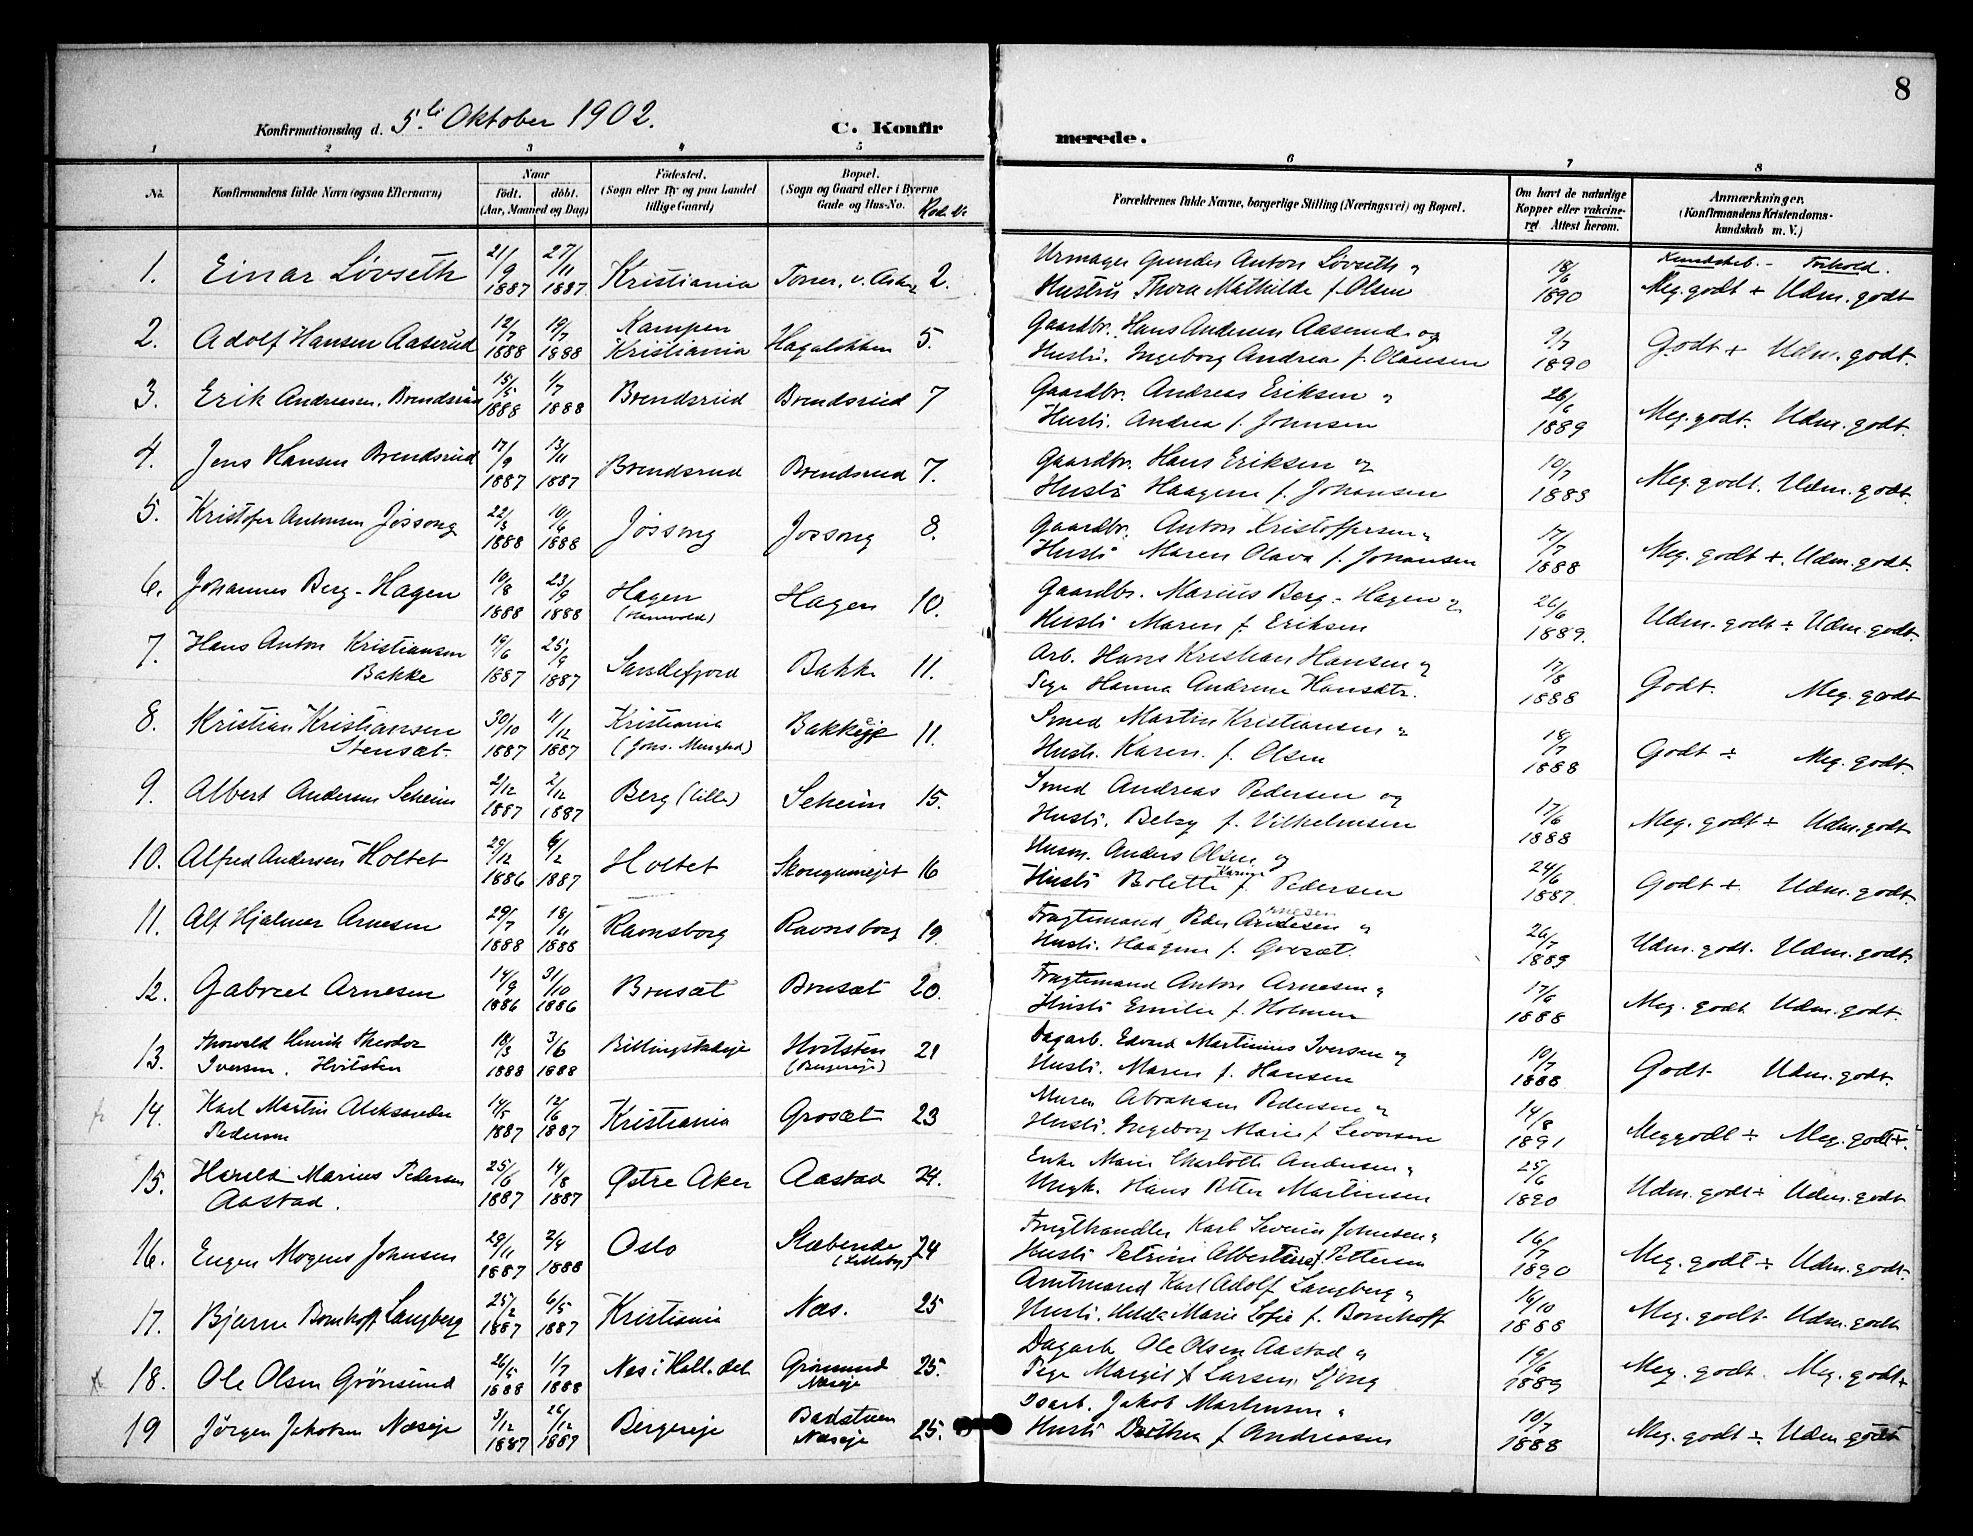 8
Konfirmationsdag d. 5te Oktober 1902. C. Konfirmerede.
1 2 3 4 5 6 7 8
No. Konfirmandens fulde Navn (ogsaa Efternavn) Naar født. døbt. (Aar, Maaned og Dag) Fødested. (Sogn eller By og paa Landet tillige Gaard) Bopæl. (Sogn og Gaard eller i Byerne Gade og Hus-No. Forældrenes fulde Navne, borgerlige Stilling (Næringsvei) og Bopæl. Om havt de naturlige Kopper eller vakcineret Attest herom. Anmærkninger. (Konfirmandens Kristendomskundskab m. V.)
Kundskab. - Forhold.
1. Einar Lövseth 21/9 1887 27/11 1887 Kristiania 2. Urmager Gunder Anton Lövseth
Hustru Thora Mathilde f. Olsen 18/6 1890 Meg. godt + Udm. godt
2. Adolf Hansen Aaserud 12/7 1888 19/7 1888 Kampen Kristiania Hagalokken 5. Gaardbr. Hans Andersen Aaserud og
Hustr. Ingeborg Andrea f. Olausen 9/7 1890 Godt + Udm. godt.
3. Erik Andreasen Brendsrud 15/5 1888 1/7 1888 Brendsrud Brendsrud 7 Gaardbr. Andreas Eriksen
Hustr. Andrea f. Johnsen 26/6 1889 Meg. godt. Udm. godt.
4. Jens Hansen Brendsrud 17/9 1887 13/11 1887 Brendsrud Brendsrud 7. Gaardbr. Hans Eriksen og
Hustr. Haagine f. Johansen 10/7 1889 Meg. godt. Udm. godt.
5. Kristofer Antonsen Jössong 22/3 1888 10/6 1888 Jössong Jössong 8. Gaardbr. Anton Kristoffersen
Hustr. Maren Olava f. Johansen 17/7 1888 Meg. godt +. Udm. godt.
6. Johannes Berg-Hagen 10/8 1888 23/9 1888 Hagen Hagen 10. Gaardbr. Marius Berg-Hagen
Hustr. Maren f. Eriksen 26/6 1889. Udm. godt ÷ Udm. godt.
7. Hans Anton Kristiansen
Bakke 19/6 1887 25/9 1887 Sandefjord Bakke 11. Arb. Hans Kristian Hansen
Pige Hanna Andrine Hansdtr. 17/8 1888 Godt. Meg. godt
8. Kristian Kristiansen
Stensæt. 30/10 1887 11/12 1887 Kristiania Bakkeje 11. Smed Martin Kristiansen
Hustr. Karen f. Olsen 18/7 1888 Godt ÷ Meg. godt.
9. Albert Andersen Seheim 2/12 1887 2/12 1887 Berg (lille) Seheim 15. Smed Andreas Pedersen og
Hustr. Betsy f. Vilhelmsen 17/6 1888 Meg. godt + Udm. godt
10. Alfred Andersen Holtet 29/12 1886 6/2 1887 Holtet Skougumejet 16 Husm. Anders Olsen og
Hustr. Bolette Karine f. Pedersen 24/6 1887. Godt + Udm. godt.
11. Alf Hjalmer Arnesen 29/7 1888 18/11 1888 Ravnsborg Ravnsborg 19. Fragtemand Peder Arnesen
Hustr. Haagine f. Grosæt. 26/7 1889 Udm. godt. Udm. godt.
12. Gabriel Arnesen 14/9 1886 31/10 1886 Bonsæt Bonsæt 20. Fragtemand Anton Arnesen
Hustr. Emilie f. Holmen 17/6 1888 Meg. godt Udm. godt.
13. Thorvald Henrik Theodor
Iversen. Hvitsten 18/3 1888 3/6 1888 Billingstadeje Hvitsten 21 Dagarb. Edvard Martinius Iversen og
Hustr. Maren f. Hansen 10/7 1888 Godt Udm. godt.
14. Karl Martin Aleksander
Pedersen 14/5 1887 12/6 1887 Kristiania Grosæt 23 Murer Abraham Pedersen
Hustr. Ingeborg Marie f. Levorsen 14/8 1891 Meg godt ÷ Meg. godt +.
15. Harald Marius Pedersen
Aastad. 25/6 1887 14/8 1887 Østre Aker Aastad 24. Enke Marie Charlotte Andersen
Ungk. Hans Petter Martinsen 25/6 1890 Udm. godt ÷ Udm. godt
16. Eugen Mogens Johnsen 29/11 1887 2/4 1888 Oslo Slæbende (Lilleby) 24 Frugthandler Karl Severin Johnsen
Hustr. Petrine Albertine f. Pettersen 16/7 1890 Meg. godt ÷ Udm. godt.
17. Bjarne Bomhoff Langberg 25/2 1887 6/5 1887 Kristiania Næs. 25 Amtmand Karl Adolf Langberg
Hustr. Hilda Marie Sofie f. Bomhoff 16/10 1888 Meg. godt Udm. godt
18. Ole Olsen Grönsund 26/5 1888 1/7 1888 Nes i Hall.dal Grönsund Næseje 25. Dagarb. Ole Olsen Aastad
Pige Margit Larsen 19/6 1889 Meg. godt. Meg. godt +
19 Jörgen Jakobsen Næseje 3/12 1887 26/12 1887 Bergereje Badstuen Næseje 25. Jakob Markusen
Hustr. Dorthea f. Andreasen 10/7 1888 Meg. godt ÷. Udm. godt